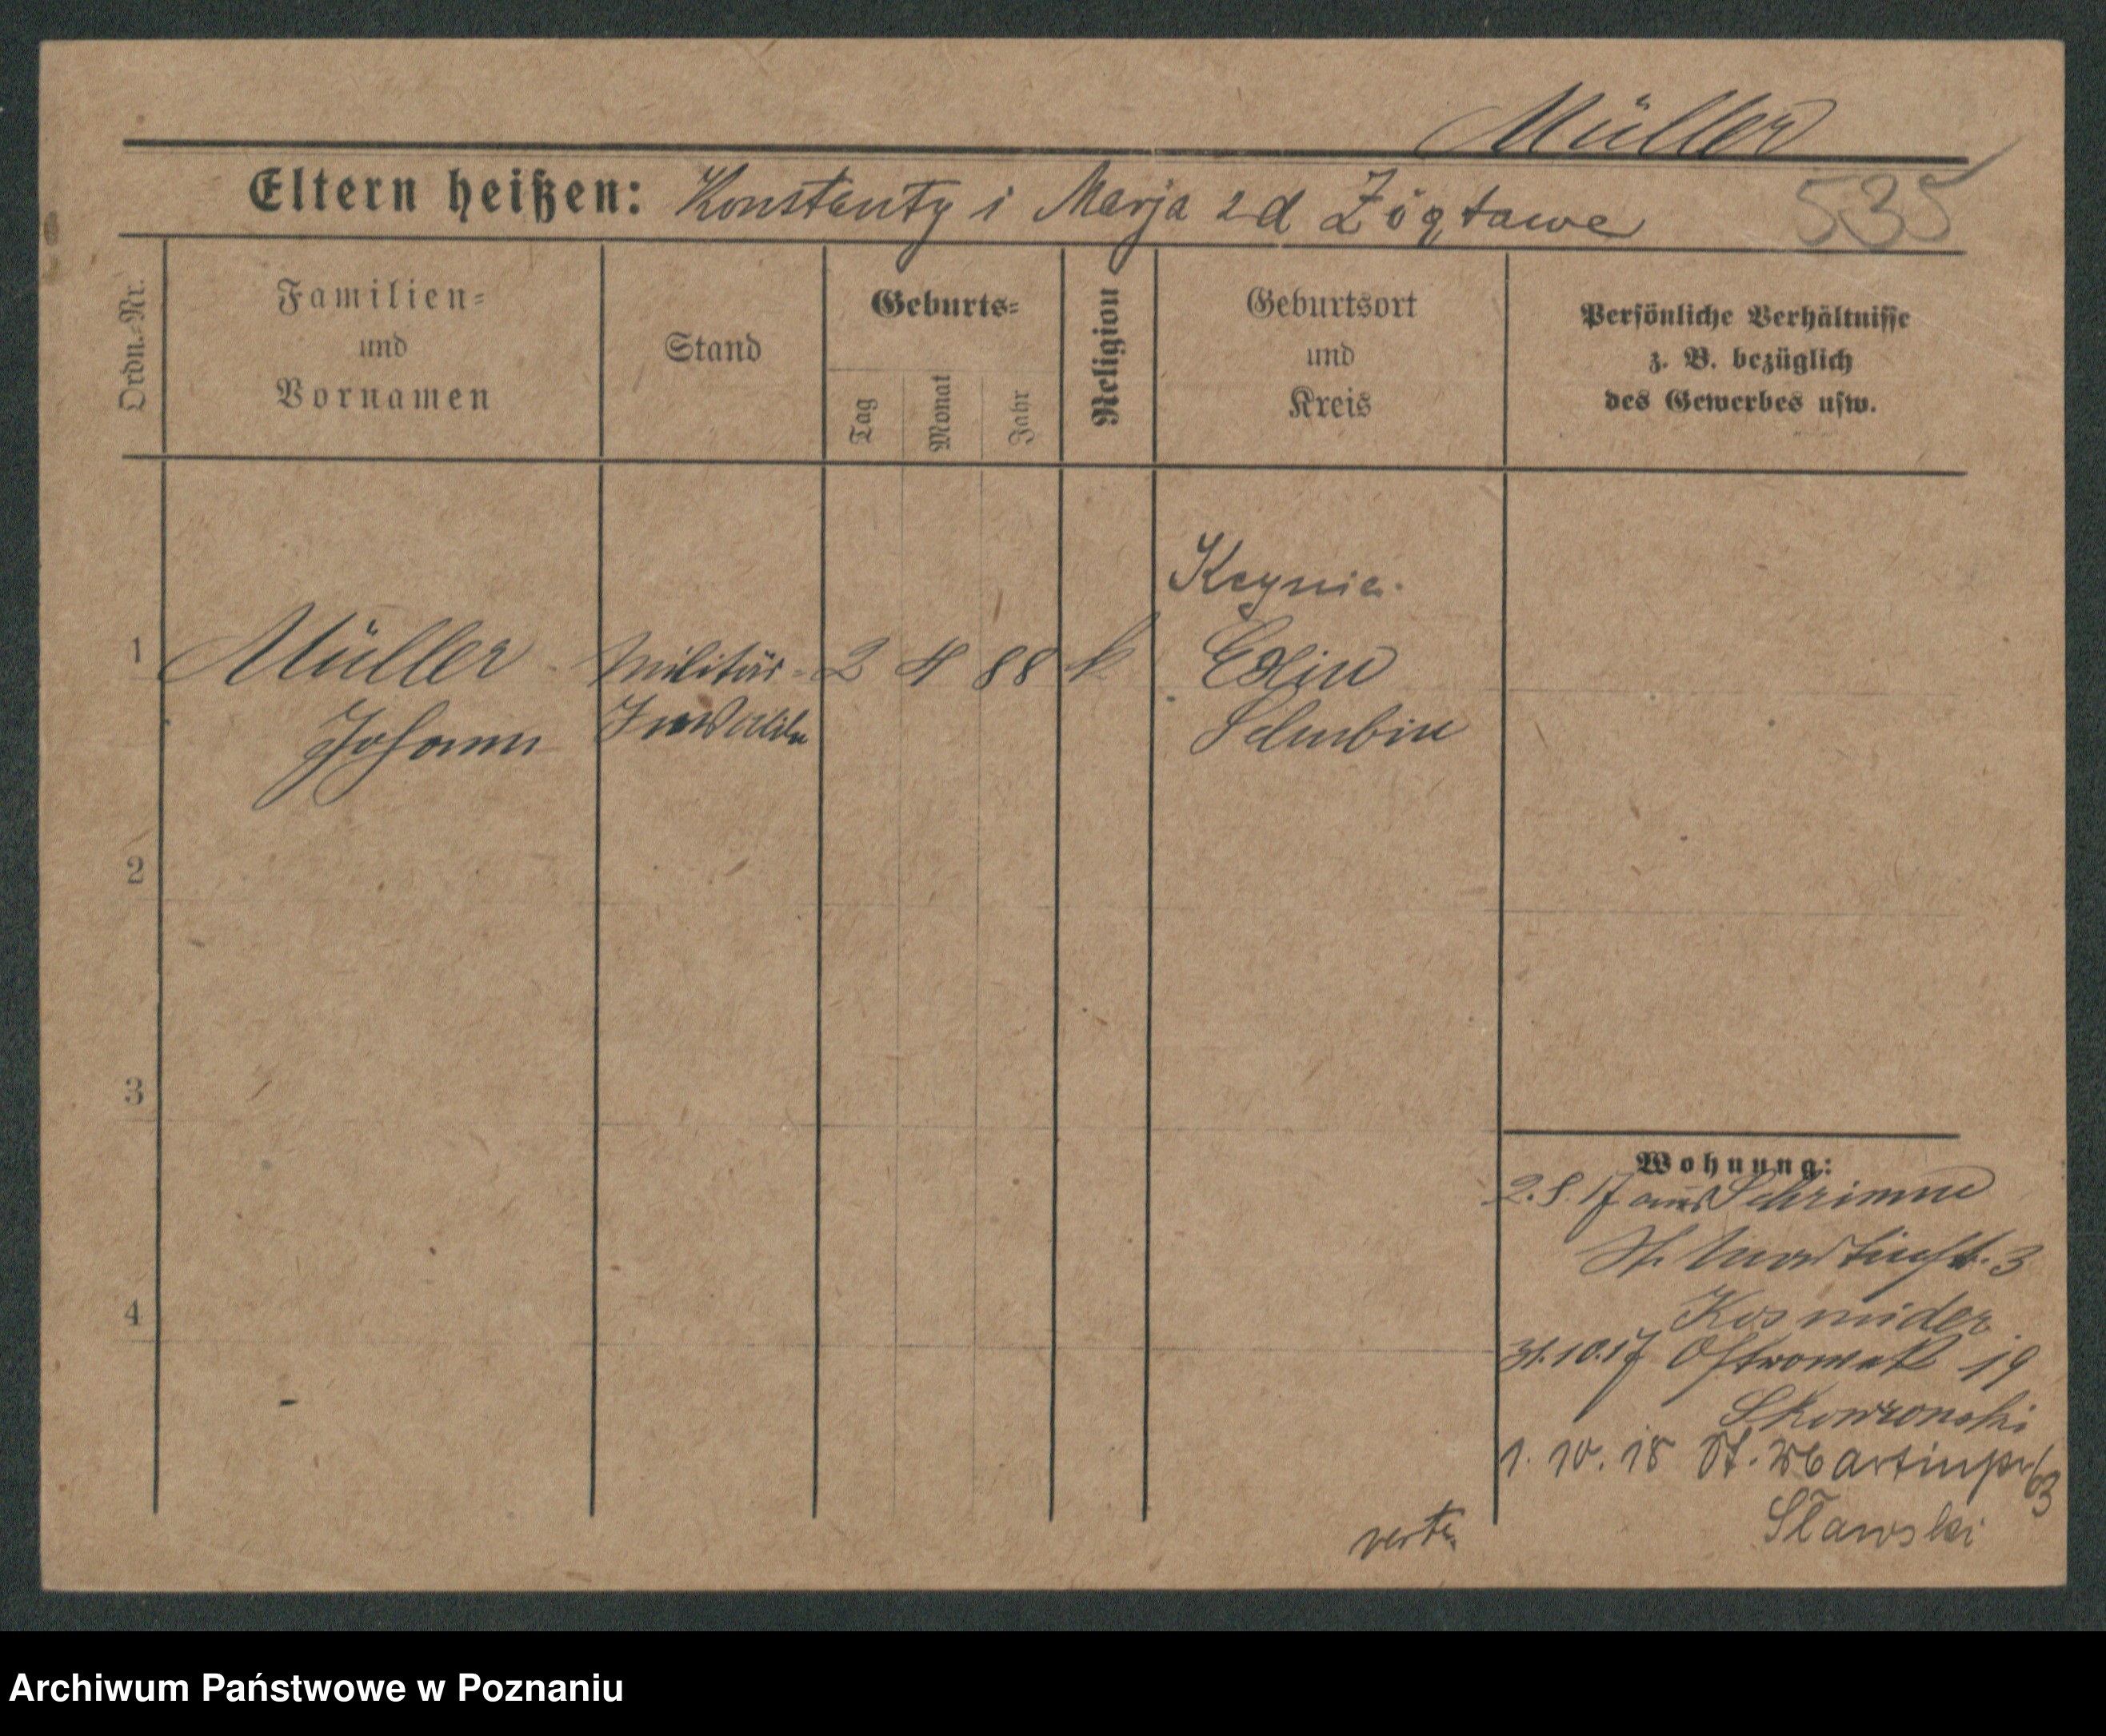 Müller
Eltern heißen: Konstanty i Marja zd
535
Ordn.-Nr.
Familien-
und
Vornamen
Stand
Geburts-
Tag
Monat
Jahr
Religion
Geburtsort
und
Kreis
Persönliche Verhältnisse
z. B. bezüglich
des Gewerbes usw.
Kcynia.
1 Müller Militär- 2 4 88 k Exin
Johann Invalide Schubin
2
3
4
Wohnung:
2.8.17 aus Schrimm
St. Martinstr. 3
Kosmider
31.10.17 19
Skowronski
1.10.18 St. Martinstr 63
Sławski
Archiwum Państwowe w Poznaniu